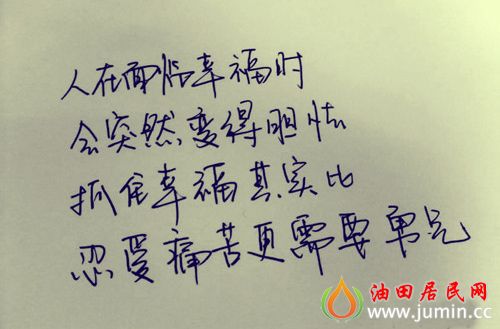 人在面临幸福时
会突然变得胆怯
抓住幸福其实比
忍受痛苦更需要勇气
油田居民网
www.jumin.cc